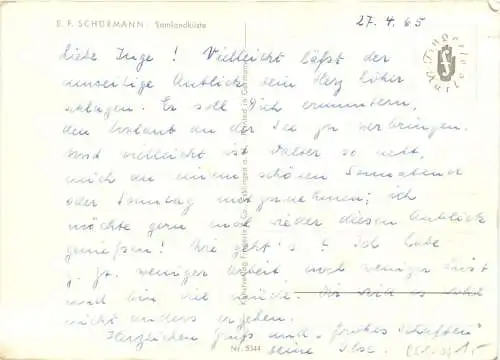 E. F. SCHÜRMANN: Samlandküste
27. 4. 65
Liebe Inge! Vielleicht läßt der
umseitige Anblick dein Herz höher
schlagen. Er soll Dich ermuntern,
den Urlaub an der See zu verbringen.
Und vielleicht ist Walter so nett,
mich an einem schönen Sonnabend
oder Sonntag mitzunehmen; ich
möchte gern mal wieder diesen Anblick
genießen! Wie geht's? Ich habe
z. Zt. weniger Arbeit noch weniger Lust
und bin viel müde. Dir wird es wohl
nicht anders ergehen.
Herzlichen Gruß und „frohes Schaffen"
Deine Ilse.
Nr. 5344
Kunstverlag
Printed in Germany